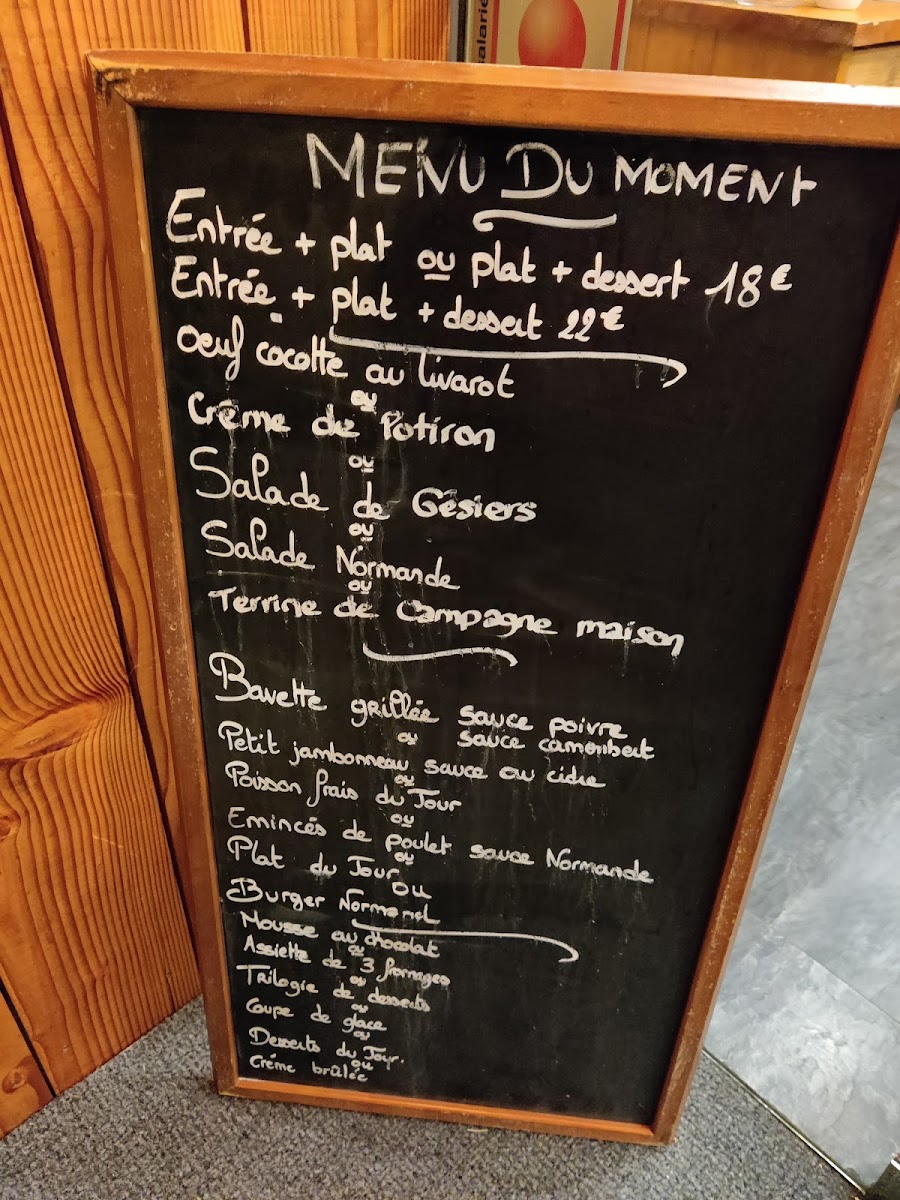 salarie
MENU DU MOMENT
Entrée + plat ou plat + dessert 18€
Entrée + plat + dessert 22€
Oeuf cocotte au livarot
ou
Crème de Potiron
ou
Salade de Gésiers
ou
Salade Normande
ou
Terrine de Campagne maison
Bavette grillée sauce poivre
ou sauce camembert
Petit jambonneau sauce au cidre
ou
Poisson frais du Jour
ou
Emincés de poulet sauce Normande
ou
Plat du Jour
ou
Burger Normand
Mousse au chocolat
ou
Assiette de 3 fromages
ou
Trilogie de desserts
ou
Coupe de glace
ou
Desserts du Jour.
ou
Crème brûlée